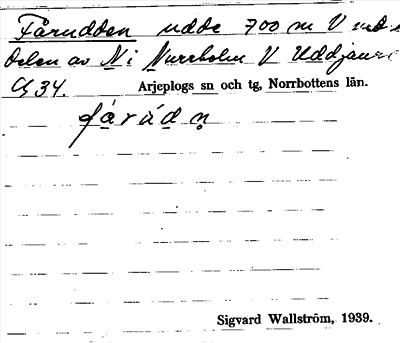 Fårudden udde 700 m V
delen av N i Norrholm V Uddjaur
G 34. Arjeplogs sn och tg, Norrbottens län.
Sigvard Wallström, 1939.